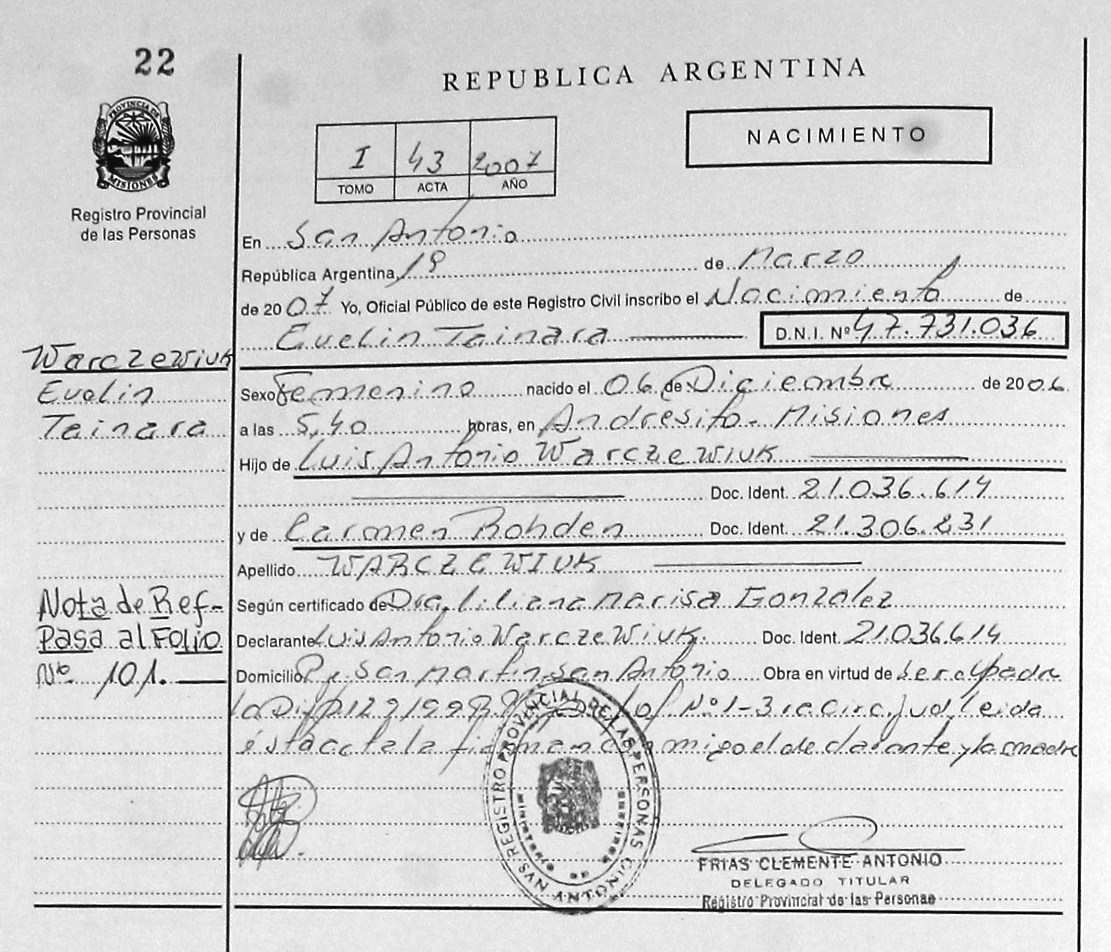 22
REPUBLICA ARGENTINA
NACIMIENTO
I 43 2007
TOMO ACTA AÑO
PROVINCIA DE
MISIONES
Registro Provincial
de las Personas
En San Antonio
República Argentina, 19 de Marzo
de 2007 Yo, Oficial Público de este Registro Civil inscribo el Nacimiento de
Evelin Tainara D.N.I. Nº 47.731.036
Warczewiuk
Evelin
Tainara
Sexo Femenino nacido el 06 de Diciembre de 2006
a las 5,40 horas, en Andresito - Misiones
Hijo de Luis Antonio Warczewiuk
Doc. Ident. 21.036.614
y de Carmen Rohden Doc. Ident. 21.306.231
Apellido WARCZEWIUK
Según certificado de Dra. Liliana Marisa Gonzalez
Declarante Luis Antonio Warczewiuk. Doc. Ident. 21036614
Domicilio San Martin San Antonio Obra en virtud de ser el padre
Nº 1-3 leida
ésta acta la firman conmigo el declarante y la madre
Nota de Ref-
Pasa al Folio
Nº 101.
REGISTRO PROVINCIAL DE LAS PERSONAS
SAN ANTONIO
FRIAS CLEMENTE ANTONIO
DELEGADO TITULAR
Registro Provincial de las Personas